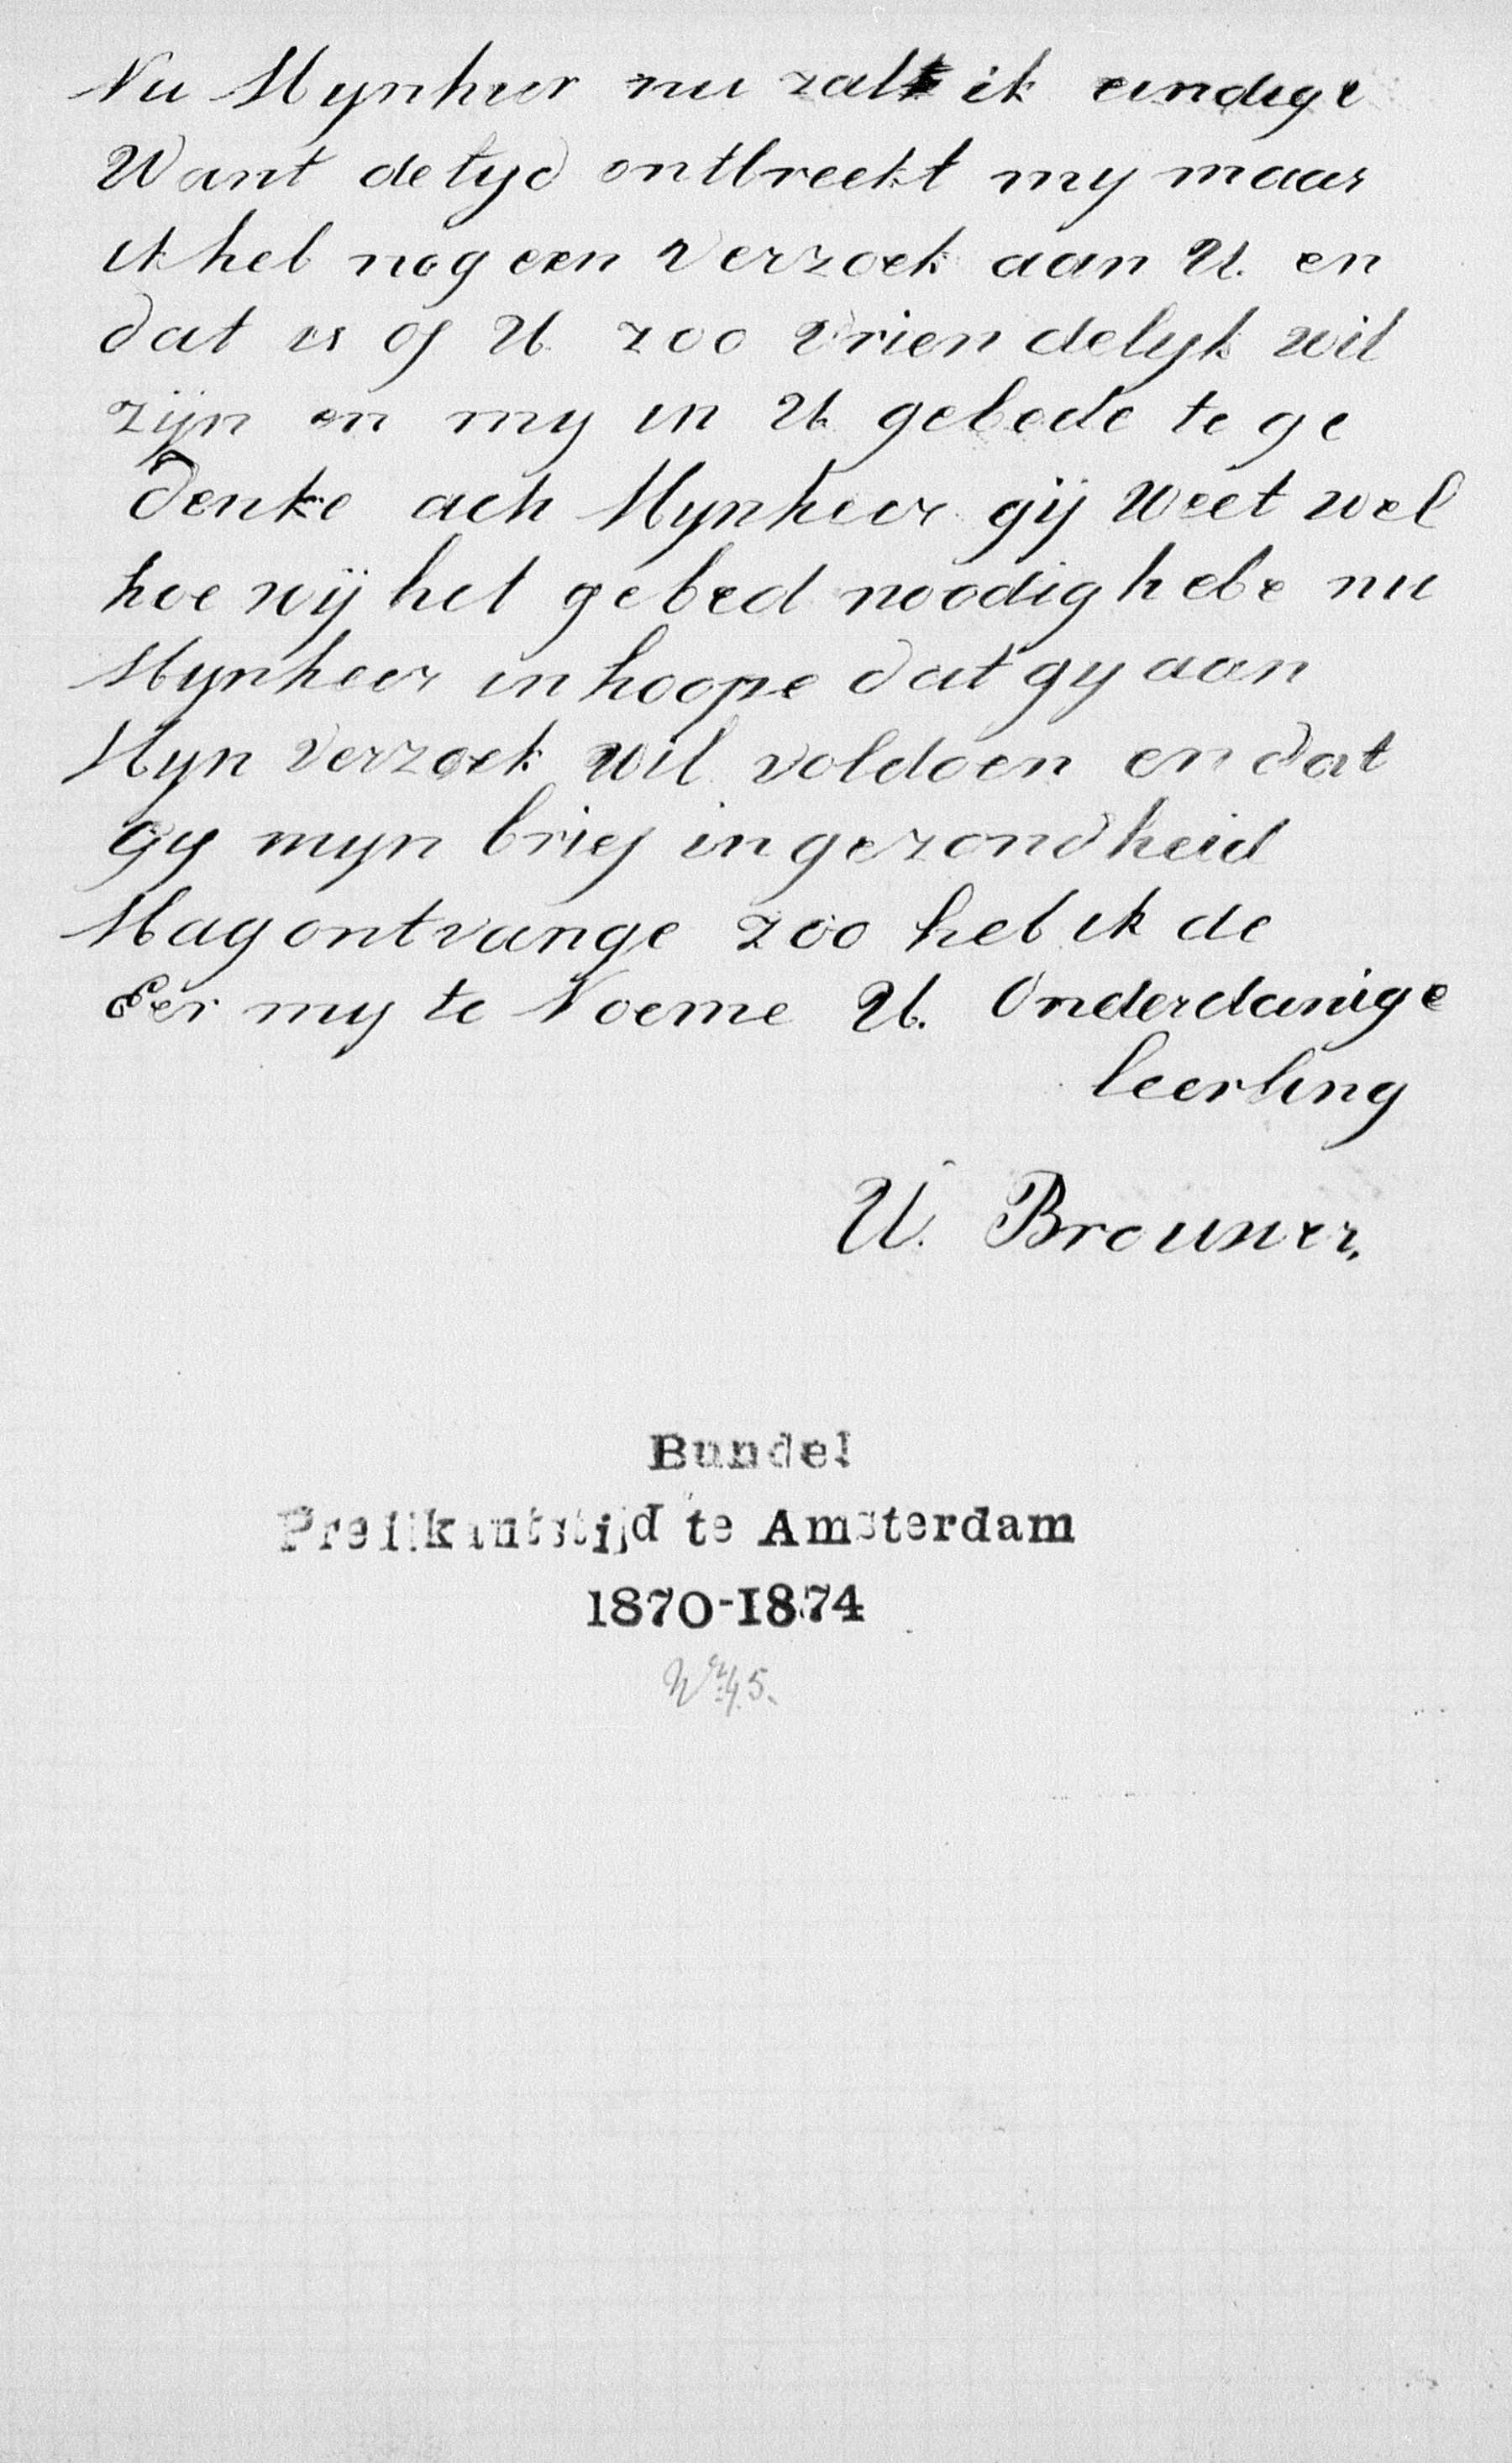 Nu Mynheer nu zal ik eindige
Want de tyd ontbreekt my maar
ik heb nog een verzoek aan U. en
dat is of U zoo vriendelyk wil
zijn en my in U gebede te ge
denke ach Mynheer gij weet wel
hoe wij het gebed noodig hebe nu
Mynheer in hoope dat gy aan
Myn verzoek wil voldoen en dat
gy myn brief in gezondheid
Mag ontvange zoo heb ik de
Eer my te Noeme U. Onderdanige
leerling
U. Brouwer.
Bundel
Predikantstijd te Amsterdam
1870-1874
Nr. 45.